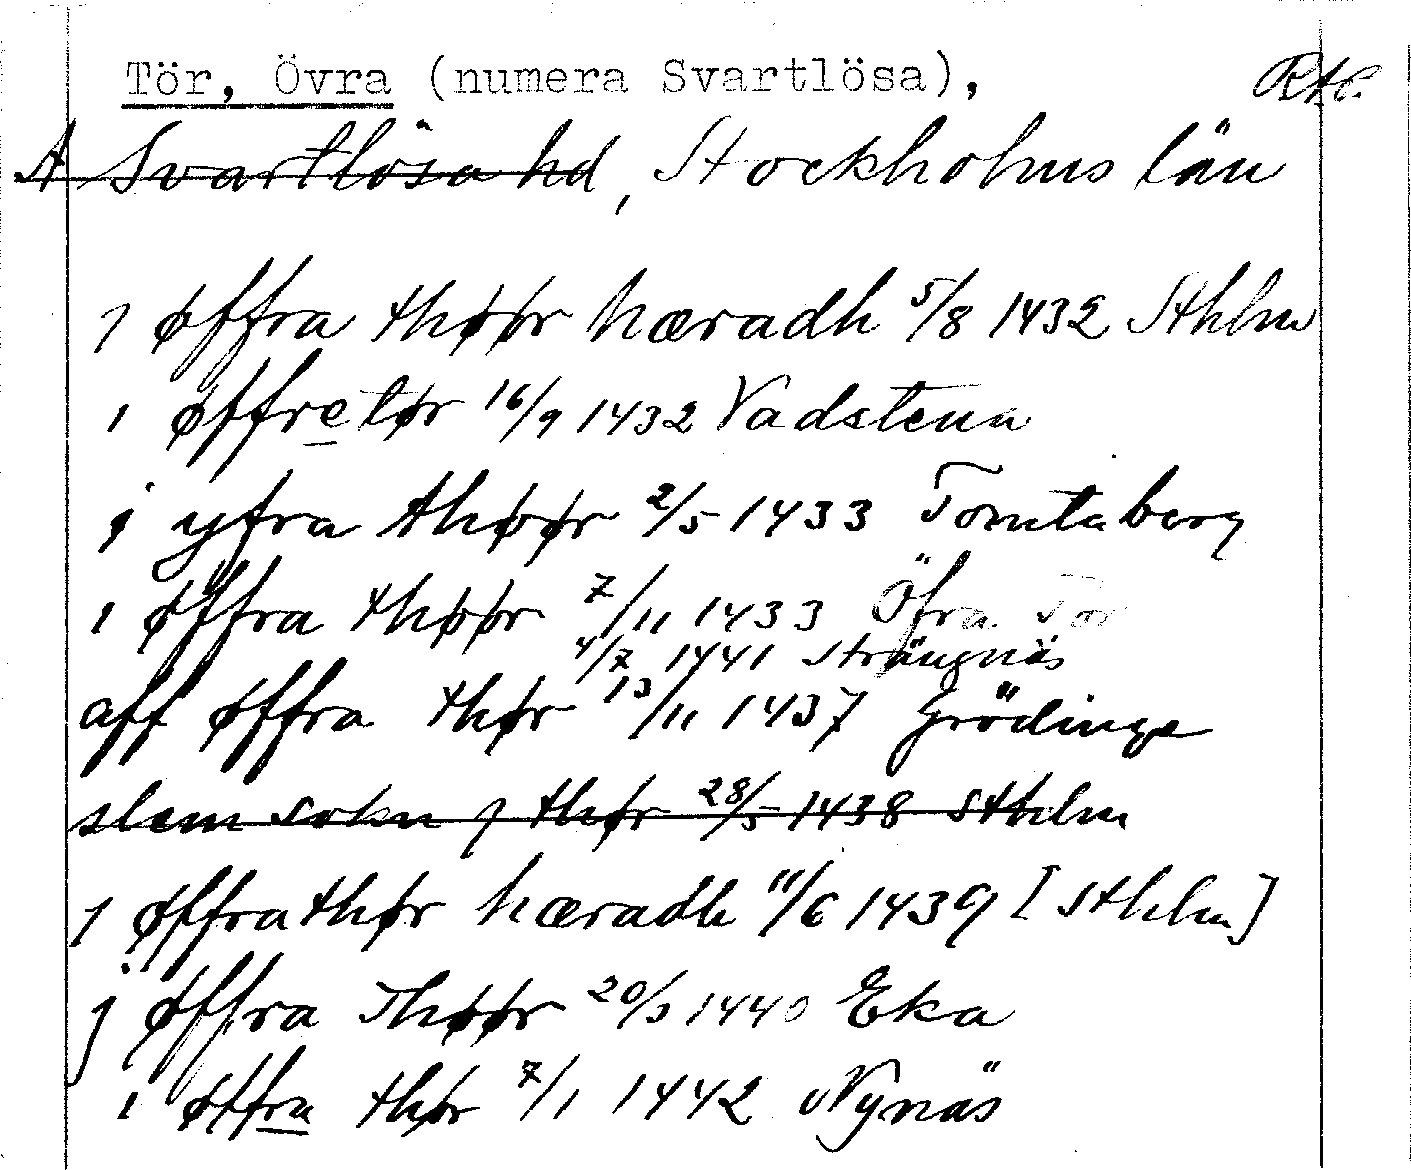 Tör, Övra (numera Svartlösa), RAP.
A Svartlösa hd, Stockholms län
j øffra thøør hæradh 5/8 1432 Sthlm
i øffre tør 16/9 1432 Vadstena
j yfra thøør 2/5 1433 Tomtaberg
i øffra thøør 7/11 1433 Öfra Tör
4/7 1441 Strängnäs
aff øffra thør 13/11 1437 Grödinge
slem sokn j thør 28/5 1438 Sthlm
j øffra thør hæradh 11/6 1439 [Sthlm]
j øffra Thøør 20/3 1440 Eka
i øffra thør 7/1 1442 Nynäs